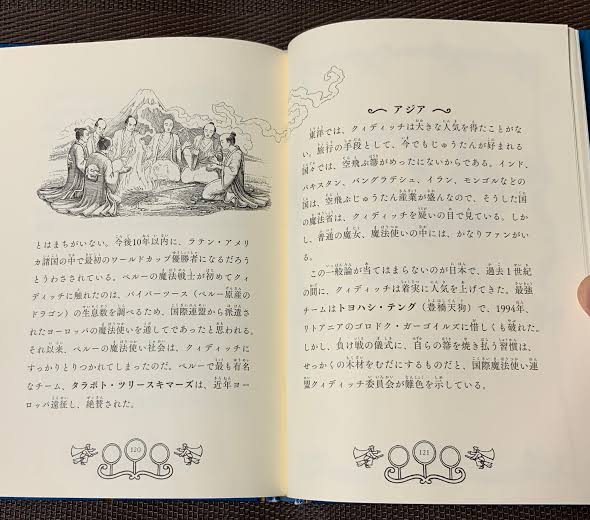 とはまちがいない。今後10年以内に、ラテン・アメリ
カ諸国の中で最初のワールドカップ優勝者になるだろう
とうわさされている。ペルーの魔法戦士が初めてクィ
ディッチに触れたのは、バイパーツース（ペルー原産の
ドラゴン）の生息数を調べるため、国際連盟から派遣さ
れたヨーロッパの魔法使いを通してであったと思われる。
それ以来、ペルーの魔法使い社会は、クィディッチに
すっかりとりつかれてしまったのだ。ペルーで最も有名
なチーム、タラポト・ツリースキマーズは、近年ヨー
ロッパ遠征し、絶賛された。
120
アジア
東洋では、クィディッチは大きな人気を得たことがな
い。旅行の手段として、今でもじゅうたんが好まれる
国々では、空飛ぶ箒がめったにないからである。インド、
パキスタン、バングラデシュ、イラン、モンゴルなどの
国は、空飛ぶじゅうたん産業が盛んなので、そうした国
の魔法省は、クィディッチを疑いの目で見ている。しか
し、普通の魔女、魔法使いの中には、かなりファンがい
る。
この一般論が当てはまらないのが日本で、過去1世紀
の間に、クィディッチは着実に人気を上げてきた。最強
チームはトヨハシ・テング（豊橋天狗）で、1994年、
リトアニアのゴロドク・ガーゴイルズに惜しくも破れた。
しかし、負け戦の儀式に、自らの箒を焼き払う習慣は、
せっかくの木材をむだにするものだと、国際魔法使い連
盟クィディッチ委員会が難色を示している。
121